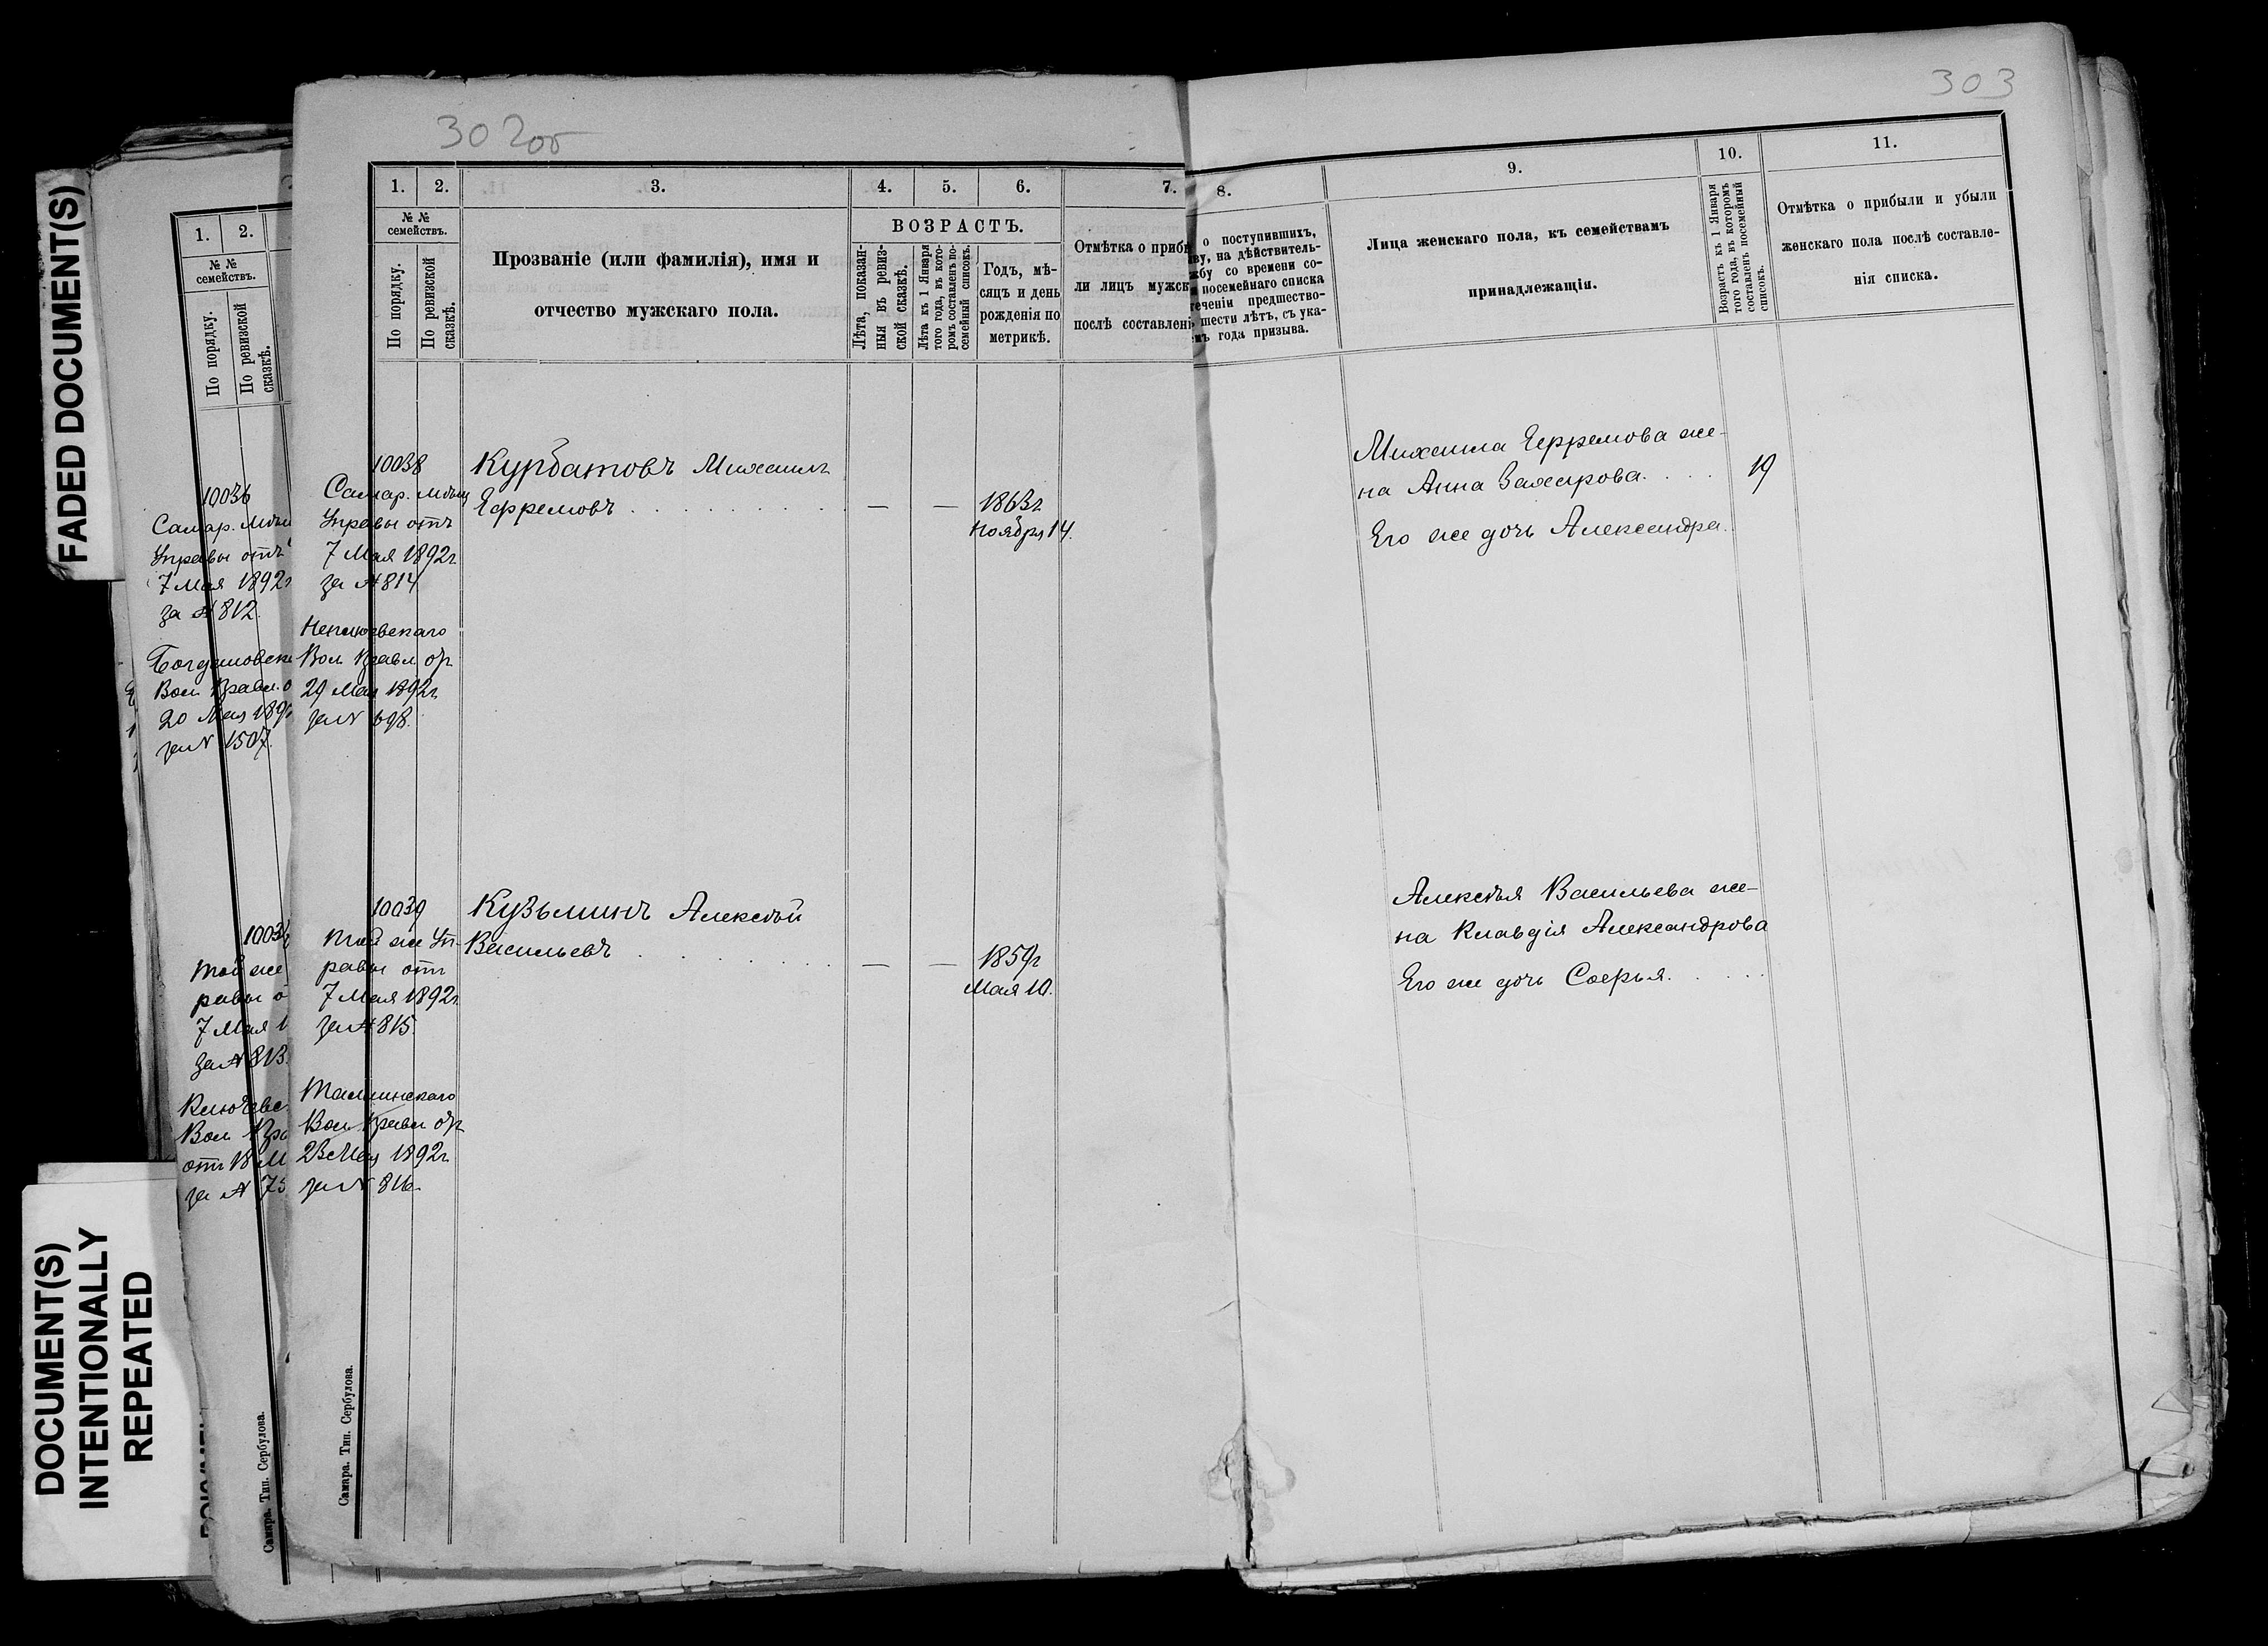 FADED DOCUMENT(S)
DOCUMENT(S)
INTENTIONALLY
REPEATED
1. 2.
№ №
семействъ.
По порядку.
По ревизской
сказкѣ.
10036
Самар. Мѣщ
Управы отъ
7 Мая 1892г
за № 812.
Вол. Правл. о
20 Мая 189
за № 1507.
1003
Той же
равы о
7 Мая 1
за № 813.
Ключевс
Вол. Пра
отъ 18 М
за № 75
Самара. Тип. Сербулова.
302об
1. 2. 3. 4. 5. 6. 7.
№ №
семействъ.
По порядку.
По ревизской
сказкѣ.
Прозваніе (или фамилія), имя и
отчество мужскаго пола.
ВОЗРАСТЪ.
Лѣта, показан-
ныя въ ревиз-
ской сказкѣ.
Лѣта къ 1 Января
того года, въ кото-
ромъ составленъ по-
семейный списокъ.
Годъ, мѣ-
сяцъ и день
рожденія по
метрикѣ.
Отмѣтка о приб
ли лицъ мужск
послѣ составлені
10038
Самар. Мѣщ
Управы отъ
7 Мая 1892г
за № 814
Вол. Правл. отъ
29 Мая 1892г.
за № 698.
Курбатовъ Михаилъ
Ефремовъ . . . . . . . . — — 1863г.
Ноября 14.
10039
Той же Уп-
равы отъ
7 Мая 1892г.
за № 815.
Вол. Правл. отъ
23 Мая 1892г.
за № 816.
Кузьминъ Алексѣй
Васильевъ . . . . . . . . — — 1859г
Мая 10.
Самара. Тип. Сербулова.
303
8. 9. 10. 11.
о поступившихъ,
ву, на дѣйствитель-
жбу со времени со-
посемейнаго списка
теченіи предшество-
шести лѣтъ, съ ука-
мъ года призыва.
Лица женскаго пола, къ семействамъ
принадлежащія.
Возрастъ къ 1 Января
того года, въ которомъ
составленъ посемейный
списокъ.
Отмѣтка о прибыли и убыли
женскаго пола послѣ составле-
нія списка.
Михаила Ефремова же-
на Анна Захарова. . . . 19
Его же дочь Александра.
Алексѣя Васильева же-
на Клавдія Александрова
Его же дочь Софья. . . . .